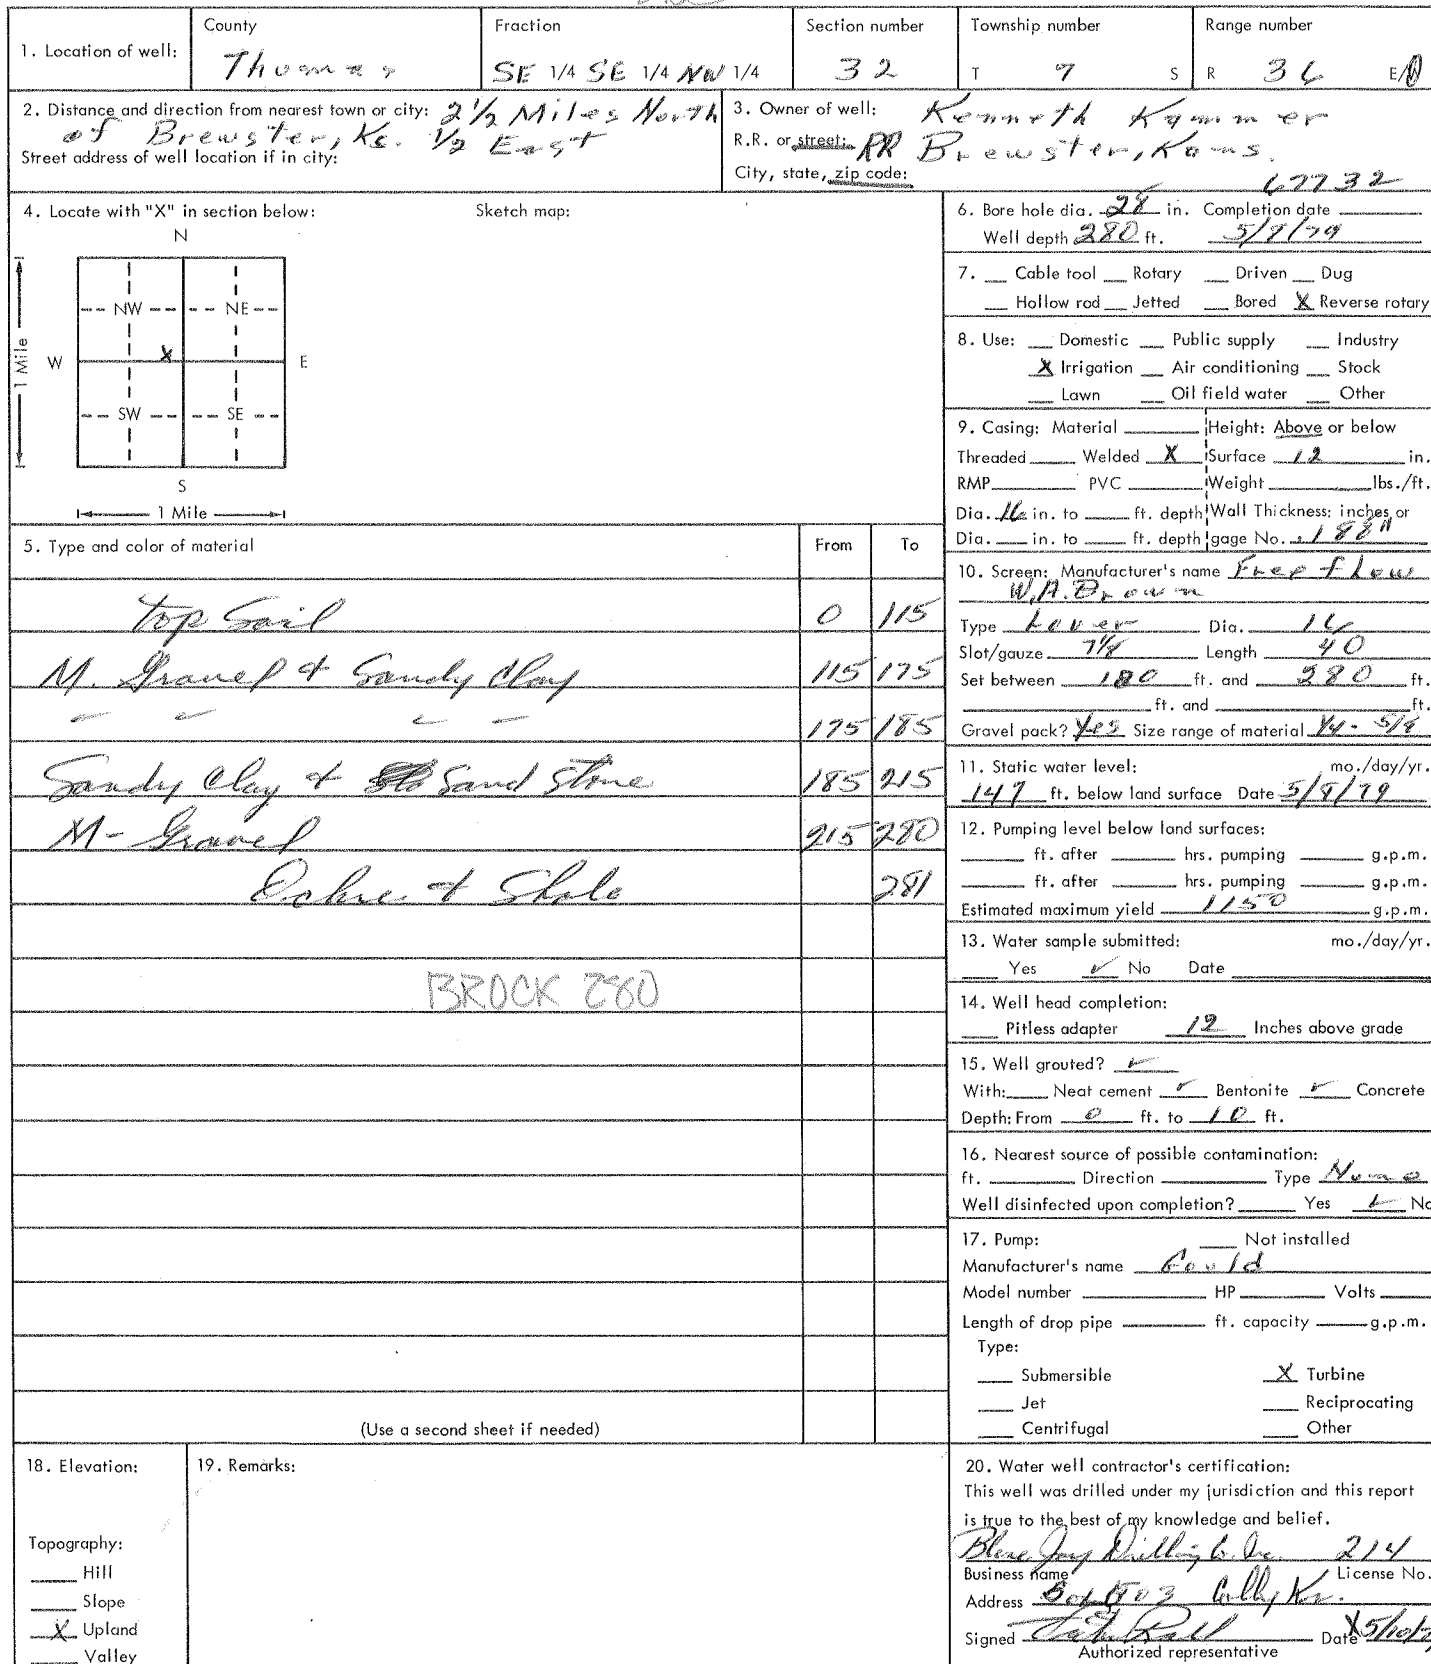 County Fraction Section number Township number Range number
1. Location of well: Thomas SE 1/4 SE 1/4 NW 1/4 32 T 7 S R 36 E/W
2. Distance and direction from nearest town or city: 2 1/2 Miles North
of Brewster, Ks. 1/2 East
Street address of well location if in city:
3. Owner of well: Kenneth Kammer
R.R. or street: RR Brewster, Kans.
City, state, zip code: 67732
4. Locate with "X" in section below: Sketch map:
N
NW NE
1 Mile W X E
SW SE
S
1 Mile
5. Type and color of material From To
Top Soil 0 115
M. Gravel & Sandy Clay 115 175
" " " " 175 185
Sandy Clay & Sand Stone 185 215
M- Gravel 215 280
Ochre & Shale 281
BROCK 280
(Use a second sheet if needed)
6. Bore hole dia. 28 in. Completion date
Well depth 280 ft. 5/8/79
7. Cable tool Rotary Driven Dug
Hollow rod Jetted Bored X Reverse rotary
8. Use: Domestic Public supply Industry
X Irrigation Air conditioning Stock
Lawn Oil field water Other
9. Casing: Material Height: Above or below
Threaded Welded X Surface 12 in.
RMP PVC Weight lbs./ft.
Dia. 16 in. to ft. depth Wall Thickness: inches or
Dia. in. to ft. depth gage No. .188"
10. Screen: Manufacturer's name Free flow
W.A. Brown
Type Lover Dia. 16
Slot/gauze 7/8 Length 40
Set between 180 ft. and 280 ft.
ft. and ft.
Gravel pack? Yes Size range of material 1/4 - 5/8
11. Static water level: mo./day/yr.
147 ft. below land surface Date 5/8/79
12. Pumping level below land surfaces:
ft. after hrs. pumping g.p.m.
ft. after hrs. pumping g.p.m.
Estimated maximum yield 1150 g.p.m.
13. Water sample submitted: mo./day/yr.
Yes ✓ No Date
14. Well head completion:
Pitless adapter 12 Inches above grade
15. Well grouted? ✓
With: Neat cement ✓ Bentonite ✓ Concrete
Depth: From 0 ft. to 10 ft.
16. Nearest source of possible contamination:
ft. Direction Type None
Well disinfected upon completion? Yes ✓ No
17. Pump: Not installed
Manufacturer's name Gould
Model number HP Volts
Length of drop pipe ft. capacity g.p.m.
Type:
Submersible X Turbine
Jet Reciprocating
Centrifugal Other
18. Elevation:
Topography:
Hill
Slope
X Upland
Valley
19. Remarks:
20. Water well contractor's certification:
This well was drilled under my jurisdiction and this report
is true to the best of my knowledge and belief.
Blue Jay Drilling Co. Inc. 214
Business name License No.
Address Box 503 Colby, Ks.
Signed Date 5/10/7
Authorized representative